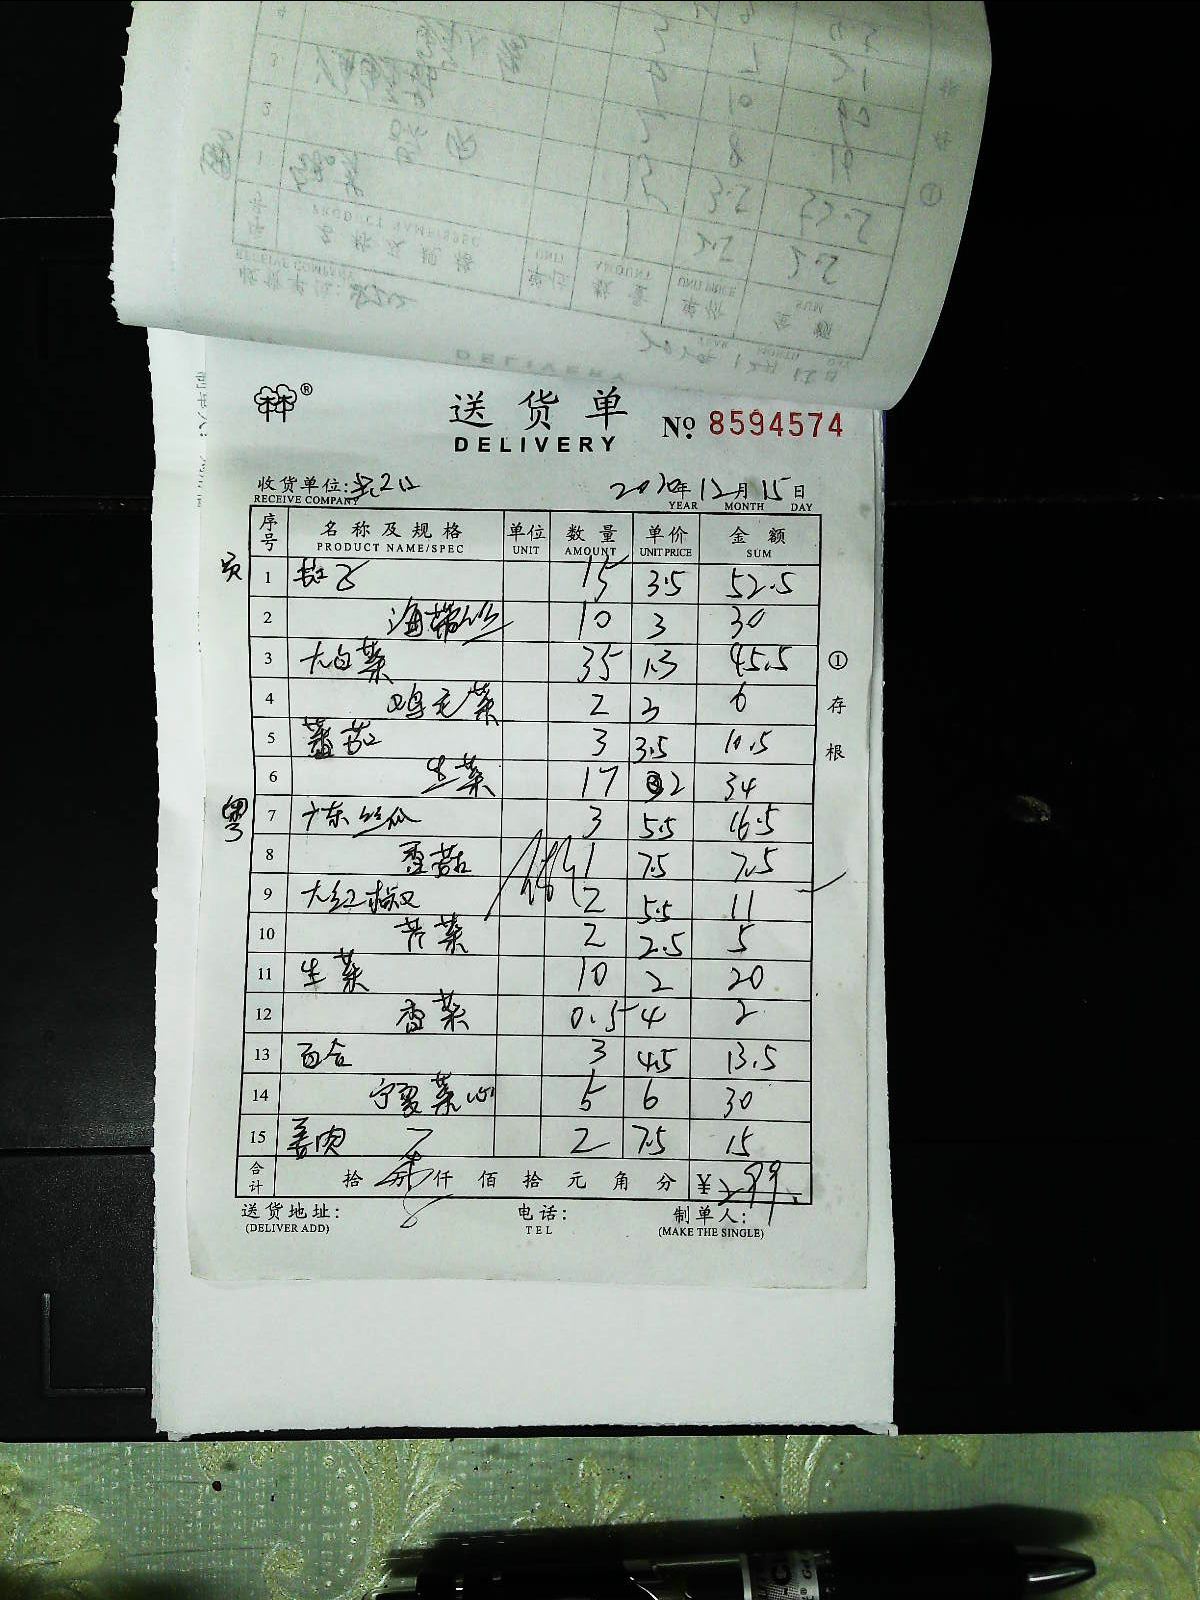 送货单
DELIVERY
№ 8594574
收货单位:
RECEIVE COMPANY
2020年12月15日
YEAR MONTH DAY
序号 名称及规格 单位 数量 单价 金额
PRODUCT NAME/SPEC UNIT AMOUNT UNIT PRICE SUM
员
1 茄子 15 3.5 52.5
2 海带丝 10 3 30
3 大白菜 35 1.3 45.5
4 鸡毛菜 2 3 6
5 蕃茄 3 3.5 10.5
6 生菜 17 2 34
粤
7 广东丝瓜 3 5.5 16.5
8 香菇 1 7.5 7.5
9 大红椒 2 5.5 11
10 芹菜 2 2.5 5
11 生菜 10 2 20
12 香菜 0.5 4 2
13 百合 3 4.5 13.5
14 宁夏菜心 5 6 30
15 姜肉 2 7.5 15
合计 拾 仟 佰 拾 元 角 分 ¥299.
送货地址: 电话: 制单人:
(DELIVER ADD) TEL (MAKE THE SINGLE)
①存根